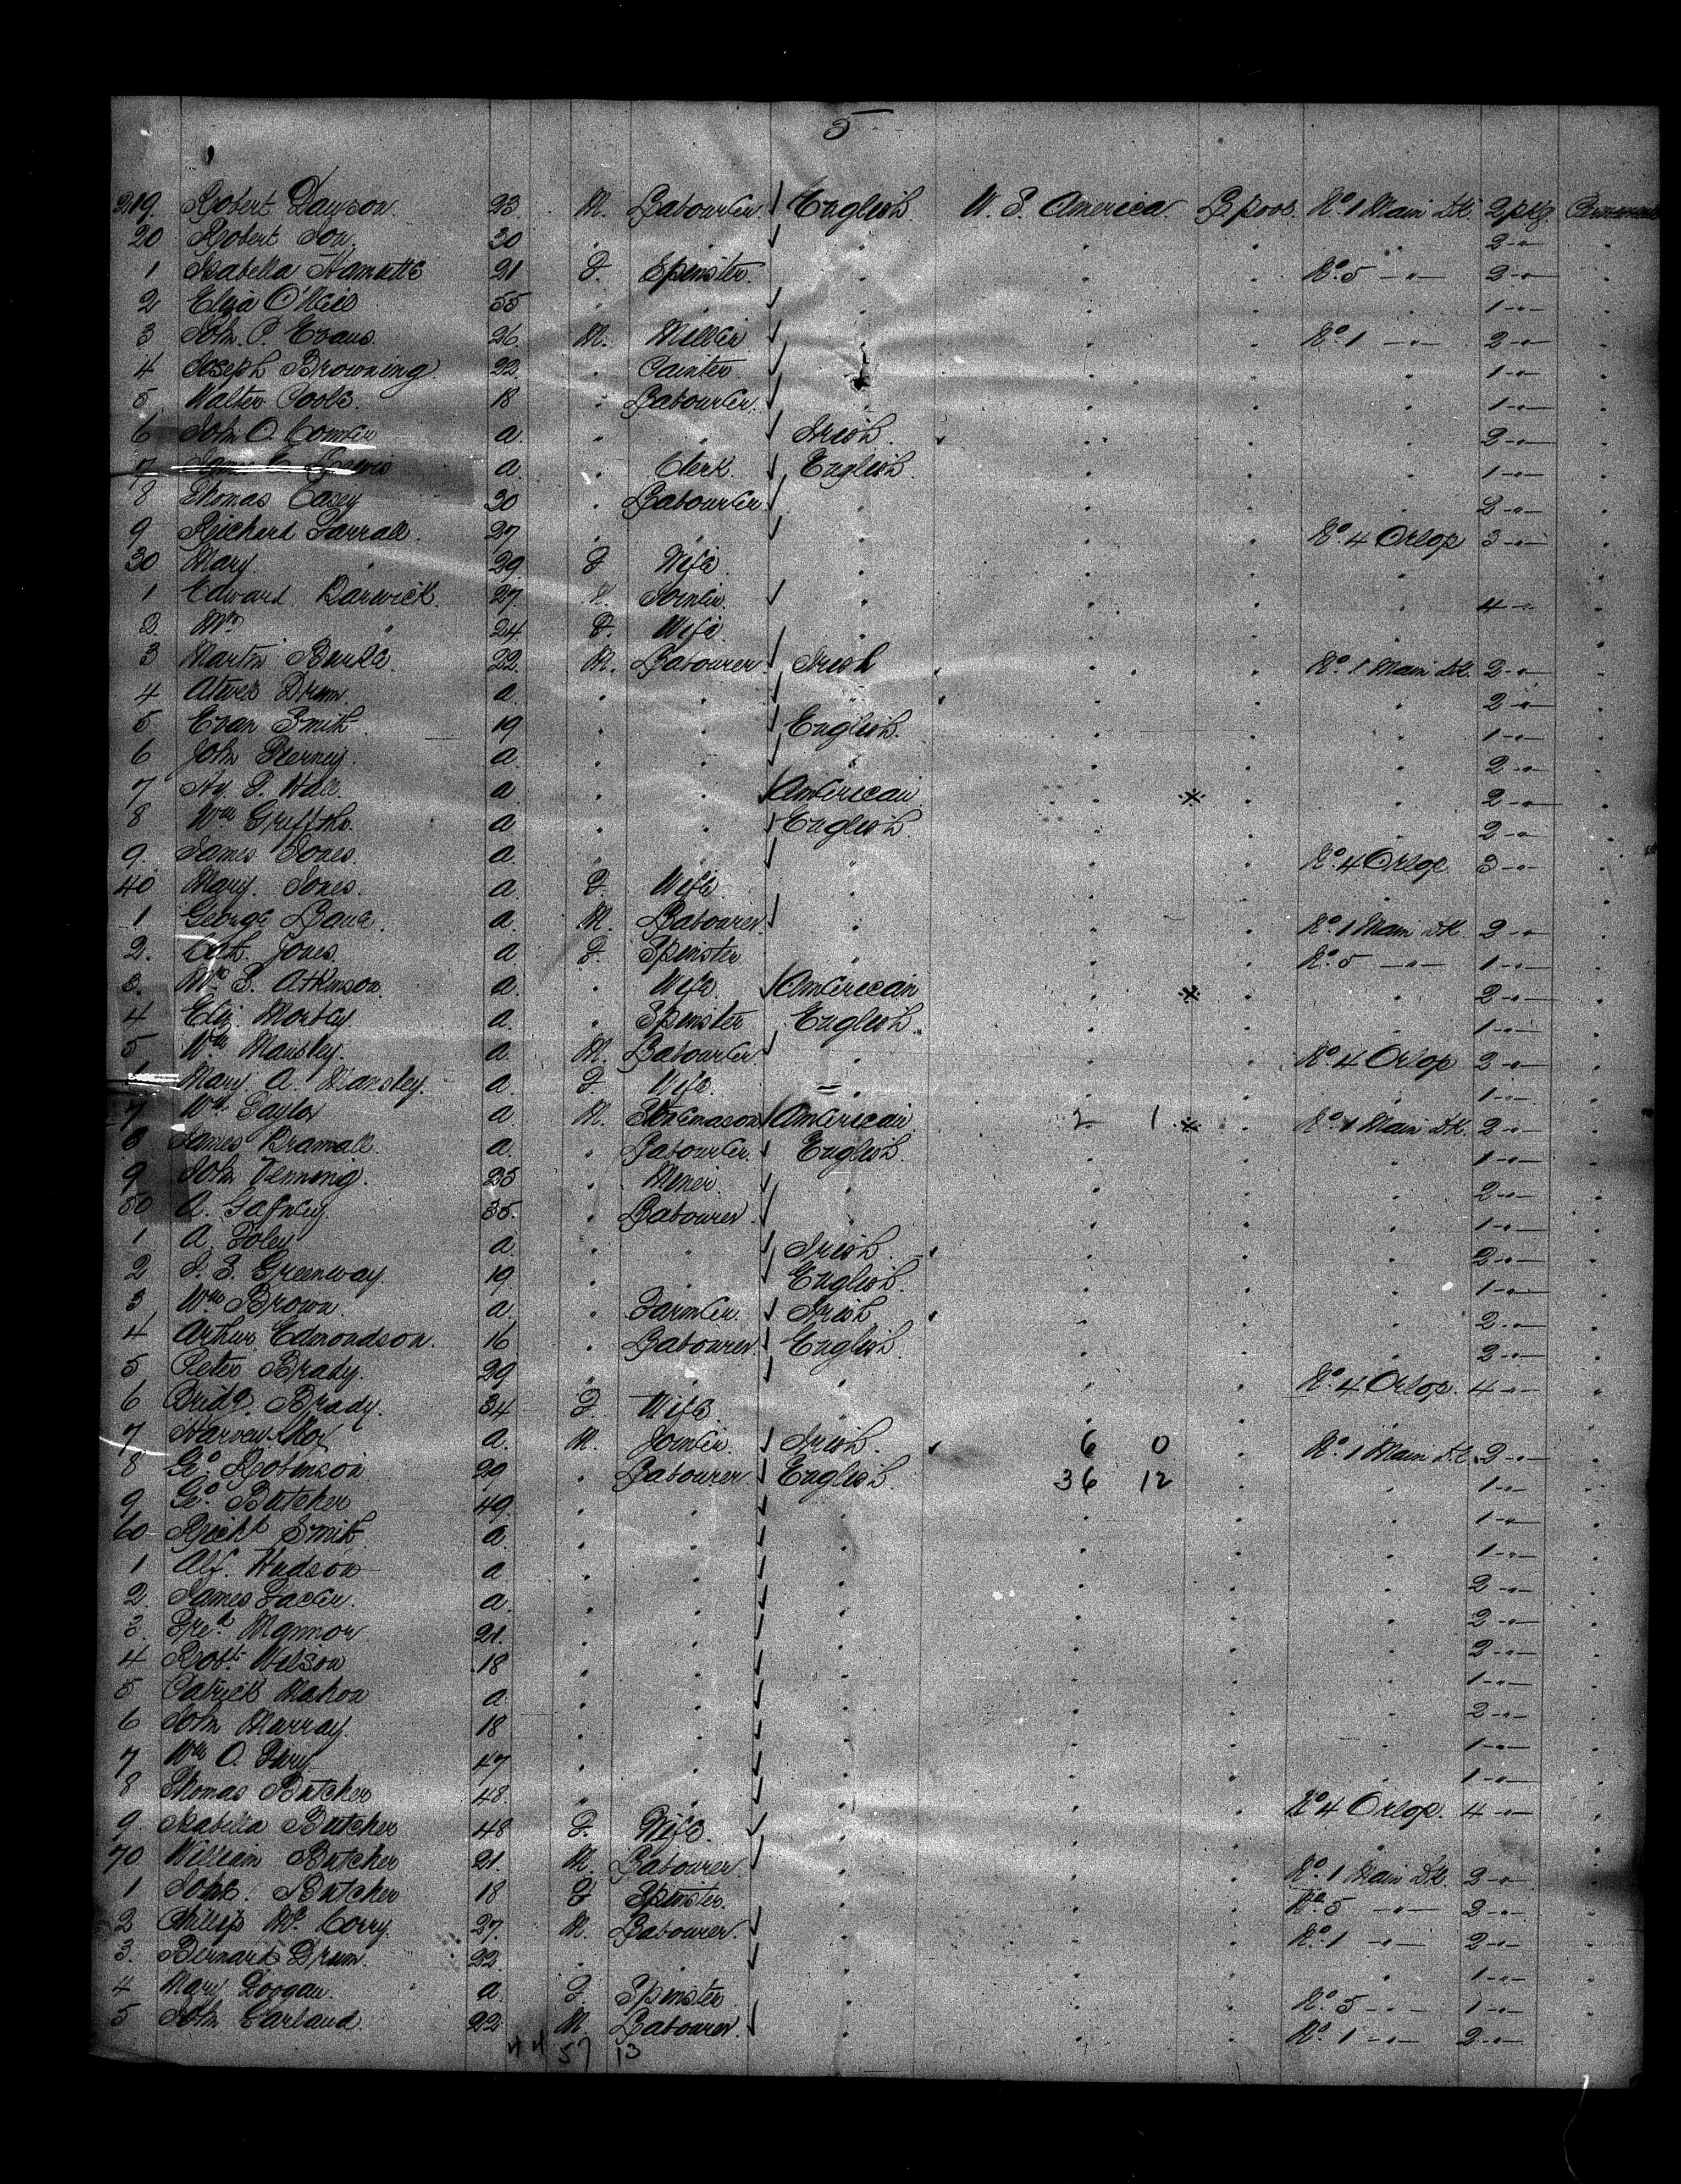 5
219. Robert Dawson. 23. M. Labourer. English. U. S. America. L.pool. No. 1 Main Dk. 2 pkg
20 Robert 30 " " " " " " 2 -"-
1 Isabella 21 F. Spinster. " " " No. 5 -"- 2 -"-
2 Eliza O'Neil 55 " " " " " 1 -"-
3 John P. Evans. 26. M. Miller " " " No. 1 -"- 2 -"-
4 Joseph Browning 22. " Painter " " " " 1 -"-
5 Walter Poole. 18 " Labourer. " " " " 1 -"-
6 John O. Connor a. " " Irish. " " " 2 -"-
7 Lewis a. " Clerk. English. " " " 1 -"-
8 Thomas Casey 30 " Labourer " " " " 2 -"-
9 Richard Farrall. 27 " " " " " No. 4 Orlop 3 -"-
30 Mary " 29. F Wife " " " "
1 Edward Barwick. 27. M. Joiner. " " " " 4 -"-
2. Mrs " 24. F. Wife " " "
3 Martin Burke. 22. M. Labourer Irish " " No. 1 Main Dk. 2 -"-
4 Drum a. " " " " " " 2 -"-
5 Evan Smith 19 " " English. " " " 1 -"-
6 John Tierney. a. " " " " " " 2 -"-
7 Hy. Hall. a. " " American " " " 2 -"-
8 Wm Griffths. a " " English " " " 2 -"-
9. James Jones. a. " " " " " No. 4 Orlop 3 -"-
40 Mary. Jones. a. F. Wife " " "
1 George a. M. Labourer. " " " No. 1 Main Dk. 2 -"-
2. Cath. Jones. a. F. Spinster " " " No. 5 -"- 1 -"-
3. Mrs S. Atkinson. a. " Wife American " " " 2 -"-
4 Eliz. Morley a. " Spinster English. " " " 1 -"-
5 Wm Mansley. a. M. Labourer " " " No. 4 Orlop 2 -"-
Mary A. Mansley. a. F Wife " " " " 1 -"-
7 Wm Taylor a. M. Stonemason American 2 1 " No. 1 Main Dk. 2 -"-
8 James Bramall. a. " Labourer. English. " " " 1 -"-
9 John Venning. 25 " Miner " " " " 2 -"-
50 A. Gafney. 35. " Labourer. " " " " 1 -"-
1 A. Foley a. " " Irish. " " " 2 -"-
2 Greenway. 19 " " English. " " " 1 -"-
3 Wm Brown. a. " Farmer. Irish " " " 2 -"-
4 Arthur Edmondson. 16 " Labourer. English. " " " 2 -"-
5 Peter Brady. 29 " " " " " No. 4 Orlop. 4 -"-
6 Bridgt. Brady. 34 F. Wife " " "
7 Harvey a. M. Joiner. Irish. 6 0 " No. 1 Main Dk. 2 -"-
8 Geo Robinson 29 " Labourer English 36 12 " 1 -"-
9 Geo. Butcher 49. " " " " " " 1 -"-
60 Richd Smith a. " " " " " " 1 -"-
1 Alf. Hudson a " " " " " " 2 -"-
2 James a. " " " " " " 2 -"-
3. Fred. 21. " " " " " " 2 -"-
4 Robt. Wilson 18 " " " " " " 1 -"-
5 Patrick Mahon a. " " " " " " 2 -"-
6 John Murray. 18 " " " " " " 1 -"-
7 Wm O. 47 " " " " " " 1 -"-
8 Thomas Butcher 48. " " " " " No 4 Orlop. 4 -"-
9. Isabella Butcher 48 F. Wife. " " " "
70 William Butcher 21. M. Labourer " " " No. 1 Main Dk. 2 -"-
1 Butcher 18 F Spinster. " " " No. 5 -"- 2 -"-
2 Philip Mc Corry. 27. M. Labourer. " " " No. 1 -"- 2 -"-
3. Bernard Drum. 22. " " " " " " 1 -"-
4 Mary Doogan. a. F. Spinster " " " No. 5 -"- 1 -"-
5 John Garland. 22 M. Labourer. " " " No. 1 -"- 2 -"-
44 57 13